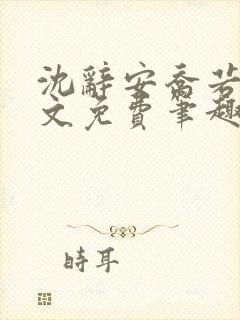 沈辭安喬若
文免費筆趣
時耳